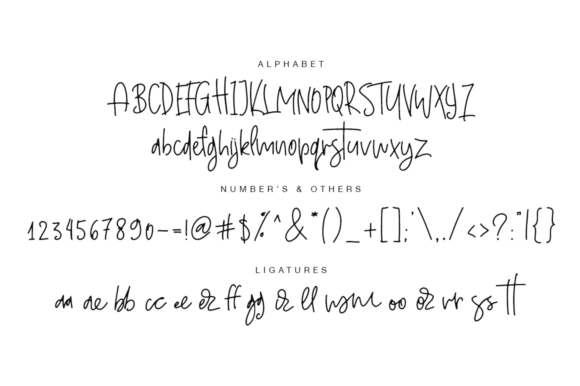 ALPHABET
ABCDEFGHIJKLMNOPQRSTUVWXYZ
abcdefghijklmnopqrstuvwxyz
NUMBER'S & OTHERS
1234567890-=!@#$%^&*()_+[];'\,./<>?:"|{}
LIGATURES
aa ae bb cc ee ff gg ll oo rr ss tt